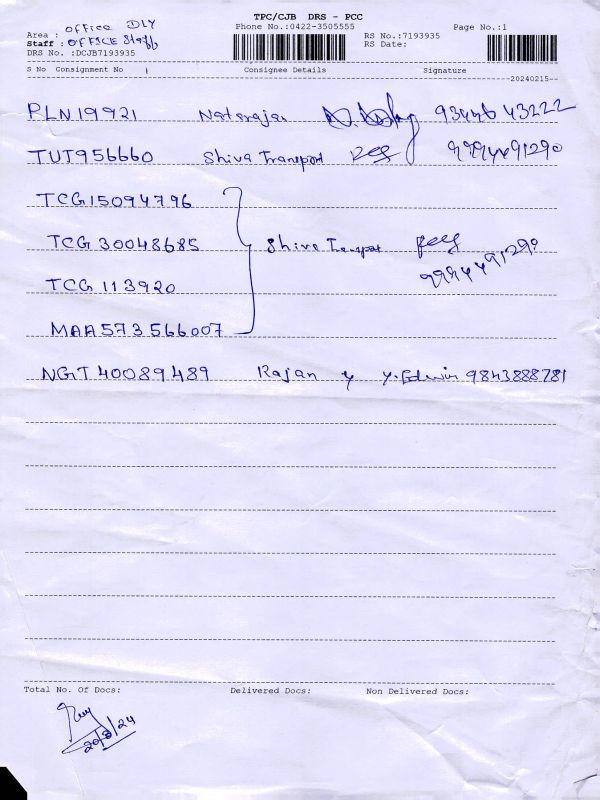 TPC/CJB DRS - PCC
Area : office DLY Phone No.:0422-3505555 Page No.:1
Staff : OFFICE Staff RS No.:7193935
DRS No. :DCJB7193935 RS Date:
S No Consignment No Consignee Details Signature
20240215
PLN19921 Natarajan 93446 43222
TUT956660 Shiva Transport 9994491290
TCG15094796
TCG30048685 Shiva Transport
9994491290
TCG113920
MAA573566007
NGT40089489 Rajan Y. Edwin 9843888781
Total No. Of Docs: Delivered Docs: Non Delivered Docs:
20/8/24